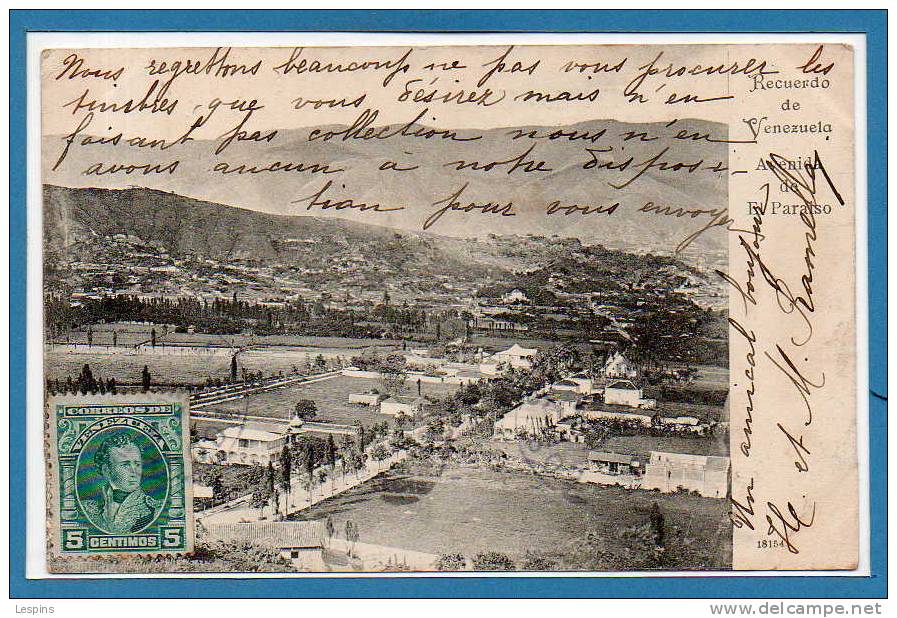 Nous regrettons beaucoup ne pas vous procurer les
timbres que vous désirez mais n'en
faisant pas collection nous n'en
avons aucun à notre disposi-
tion pour vous envoyer
Recuerdo
de
Venezuela
Avenida
de
El Paraiso
Mon amical bonjour
et M. Ramella
18154
CORREOS DE
VENEZUELA
5 5
CENTIMOS
Lespins
www.delcampe.net